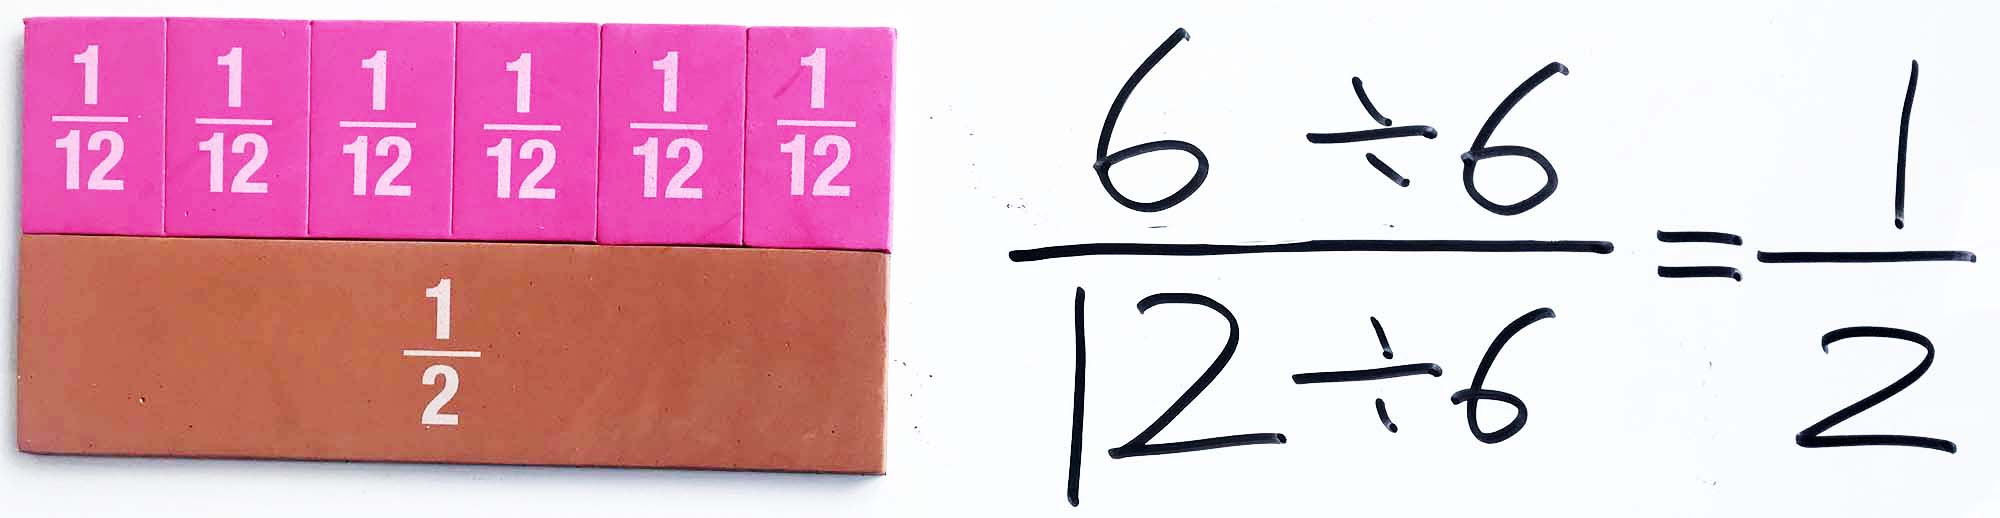 1/12 1/12 1/12 1/12 1/12 1/12
1/2
6 ÷ 6 / 12 ÷ 6 = 1/2